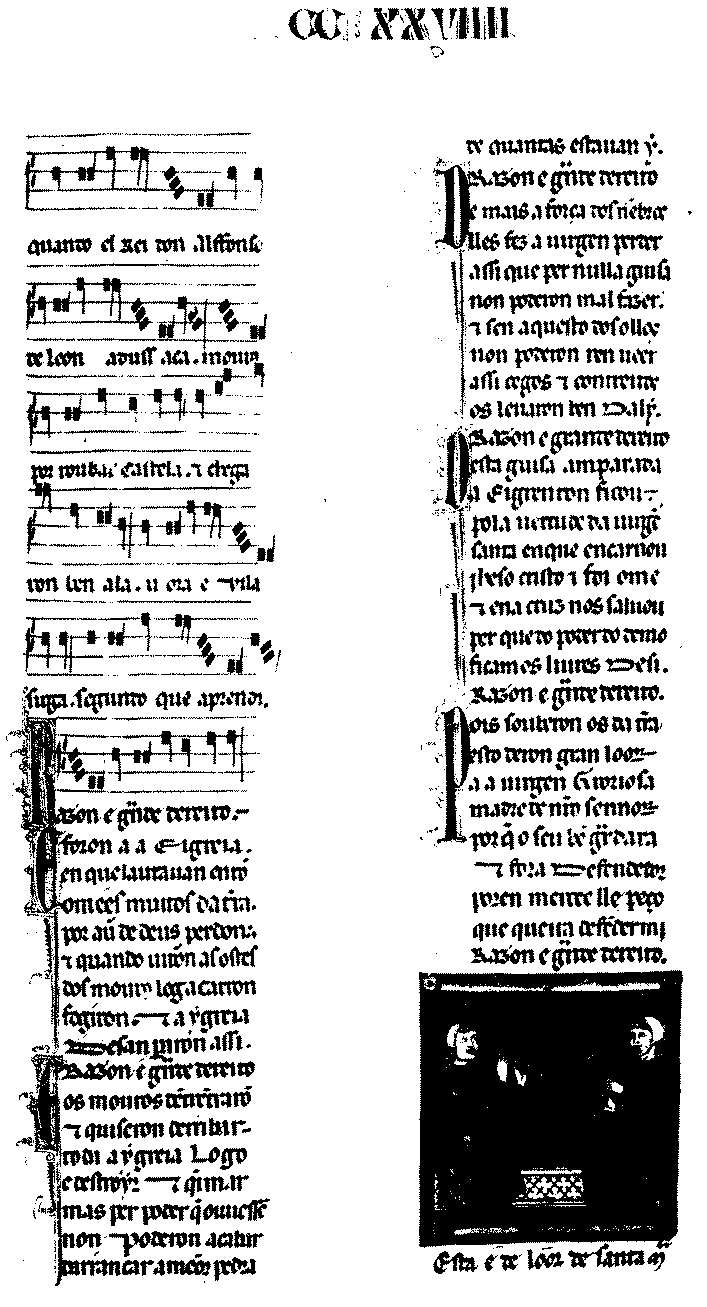 CC XXVIIII
quanto el Rei don Alffonso
de leon aduss aca. mouros
por roubar Castela. ⁊ chega
ron ben ala. u ora e Vila
suga. segundo que aprendi.
Razon e gñde dereito.
foron a a Eigreia.
en que laurauan entõ
omees muitos da t̃ra.
por aũ de deus perdon.
⁊ quando uirõn as ostes
dos mouros log a carron
fogiron. ⁊ a ygreia
Desanpirõn assi.
Razon e gñde dereito
os mouros
⁊ quiseron derribar
toda a ygreia Logo
e destroyr. ⁊ q̃imar
mas per poder q̃ ouuess̃e
non poderon acabar
darrancar a mẽor pedra
de quantas estauan y.
Razon e gñde dereito
E mais a força dos nebre
lles fez a uirgen perder
assi que per nulla guisa
non poderon mal fazer.
⁊ sen aquesto dos ollos
non poderon ren ueer
assi cegos ⁊ contreitos
os leuaron ben Daly.
Razon e grande dereito
Desta guisa amparada
a Eigreia ron ficou
pola uertude da uirgẽ
santa en que encarnou
jheso cristo ⁊ foi ome
⁊ ena cruz nos saluou
per que do poder do demo
ficamos liures Desi.
Razon e gñde dereito.
Pois souberon os da t̃ra
esto deron gran loor
a a uirgen Gloriosa
madre de nr̃o sennor
por q̃ o seu bẽ gr̃dara
⁊ fora Defendedor
poren mercee lle peço
que queira defẽder mi
Razon e gñde dereito.
Esta e de loor de santa m̃